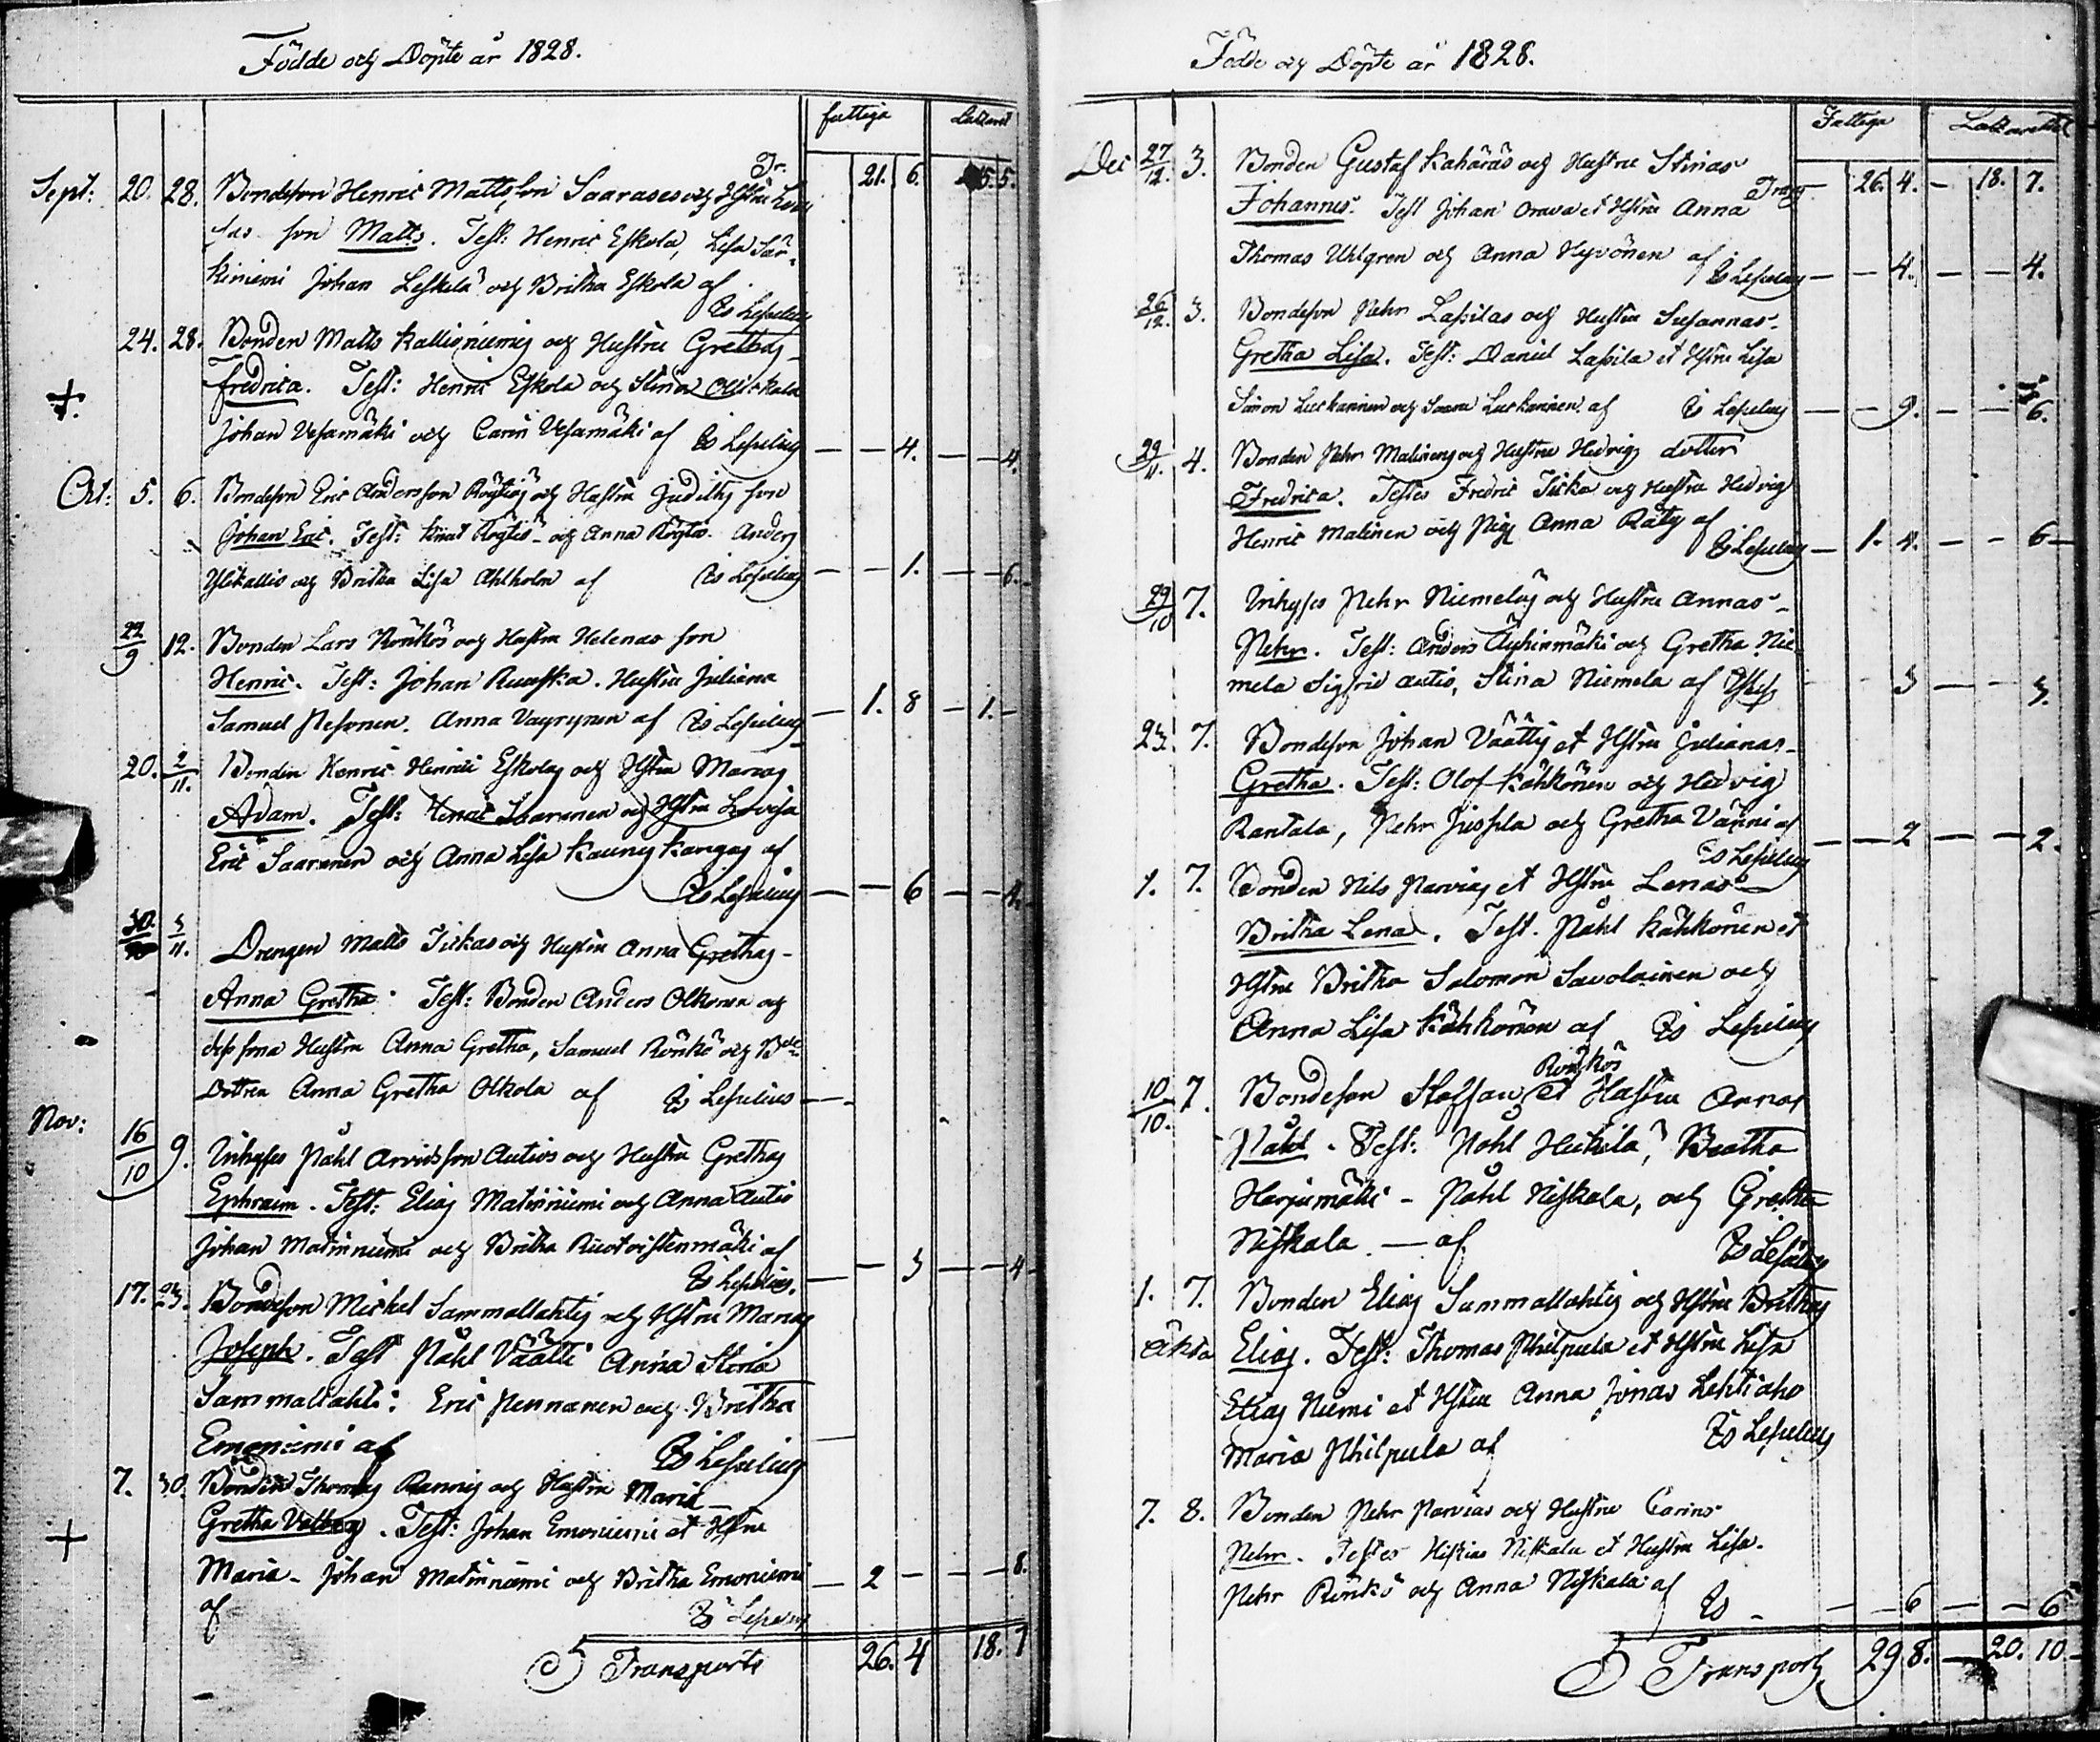 Födde och Döpte år 1828.
fattiga Lazaret
Tr. 21. 6. 15. 5.
Sept: 20. 28. Bondeson Henric Mattsson Saarases och Hstru
son Matts. Test: Henric Eskola, Lisa Sär-
kiniemi Johan Leskelä och Britha Eskola af
Es Lespelius
24. 28. Bonden Matts Kallioniemis och Hustru Grethas
Fredrica. Test: Henric Eskola och Stina
Johan Vesamäki och Carin Vesamäki af Es Lespelius — — 4. — — 4.
Oct: 5. 6. Bondeson Eric Andersson och Hustru Judiths son
Johan Eric. Test: Knut och Anna Anders
Ylikallio och Britha Lisa Ahlholm af Es Lespelius — — 1. — — 6.
22/9 12. Bonden Lars Rönkös och Hustru Helenas son
Henric. Test: Johan Hustru Juliana
Samuel Pesonen. Anna Väyrynen af Es Lespelius — 1. 8 — 1. —
20. 2/11. Bonden Henric Henrici Eskolas och Hstru Marias
Adam. Test: Henric Saaranen och Hstru Lovisa
Eric Saaranen och Anna Lisa Kaunis Kangas af
Es Lespelius — — 6 — — 4.
30. 3/11. Drengen Matts Tickas och Hustru Anna Grethas-
Anna Gretha. Test: Bonden Anders Olkonen och
dess fru Hustru Anna Gretha, Samuel Rönkö och Bde
Dottren Anna Gretha Olkola af Es Lespelius — —
Nov: 16/10 9. Inhyses Påhl Arvidsson Autios och Hustru Grethas
Ephraim. Test: Elias Matinniemi och Anna Autio
Johan Matinniemi och Britha af
Es Lespelius. — — 3 — — 4
17. 23. Bondeson Michel Sammallahtis och Hstru Marias
Joseph. Test Påhl Väätti Anna Stina
Sammallahti: Eric Pennanen och Britha
Emoniemi af Es Lespelius —
7. 30. Bonden Thomas Rannis och Hustru Maria —
Gretha Valborg. Test: Johan Emoniemi et Hstru
Maria - Johan Matinniemi och Britha Emoniemi — 2 — — — 8.
af Es Lespelius
Transports 26. 4 18. 7
Födde och Döpte år 1828.
Fattiga Lazarettet
Dec 27/12. 3. Bonden Gustaf Kaharäs och Hustru Stinas
Johannes. Test Johan Orava et Hstru Anna Transp. 26. 4. — 18. 7.
Thomas Uhlgren och Anna Hyvönen af Es Lespelius — — 4. — — 4.
26/12. 3. Bondeson Pehr Lassilas och Hustru Susannas-
Gretha Lisa. Test: Daniel Lassila et Hstru Lisa
Simon Luckarinen och Luckarinen af Es Lespelius — — 9. — — 6.
29/11. 4. Bonden Pehr Malinens och Hustru Hedvigs dotter
Fredrica. Testes Fredric Ticka och Hustru Hedvig
Henric Malinen och Pig. Anna Räty af
Es Lespelius — 1. 4. — — 6 —
29/10 7. Inhyses Pehr Niemeläs och Hustru Annas-
Pehr. Test: Anders och Gretha Nie
mela Sigfrid Autio, Stina Niemela af 3 — — 3.
23. 7. Bondeson Johan Väättis et Hstru Julianas-
Gretha. Test: Olof Kähkönen och Hedvig
Rantala, Pehr Jussila och Gretha Vänni af
Es Lespelius — — 2 — — 2.
1. 7. Bonden Nils Parvias et Hstru Lenas
Britha Lena. Test. Påhl Kähkönen et
Hstru Britha Salomon Savolainen och
Anna Lisa Kähkönen af Es Lespelius
Rönkös
10/10. 7. Bondeson Staffan et Hustru Annas
Påhl. Test: Pohl Heikila, Beatha
Harjumäki - Påhl Niskala, och Gretha
Niskala — af Es Lespelius
1. 7. Bonden Elias Sammallahtis och Hstru Brithas
äkta Elias. Test: Thomas Philpula et Hstru Lisa
Elias Niemi et Hstru Anna Jonas Lehtiaho
Maria Philpula af Es Lespelius
7. 8. Bonden Pehr Parvias och Hustru Carins
Pehr. Testes Hiskias Niskala et Hustru Lisa.
Pehr Rönkö och Anna Niskala af Es - — — 6 — — 6
Transport 29 8. — 20. 10